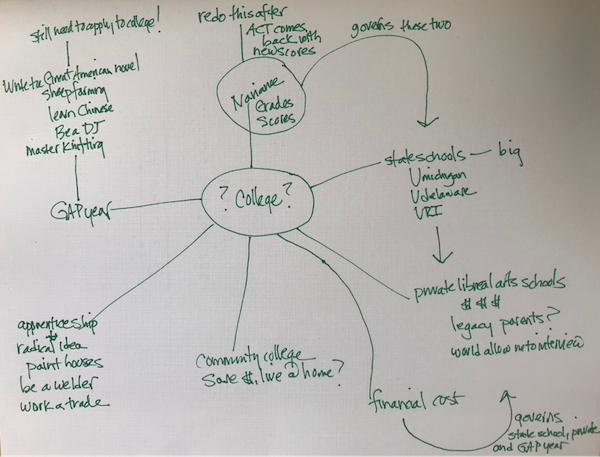 still need to apply to college!
Write the Great American novel
sheep farming
learn Chinese
Be a DJ
master knitting
GAP year
redo this after
ACT comes
back with
new scores
Naviance
Grades
Scores
governs these two
state schools — big
U michigan
U delaware
URI
? College ?
private libreal arts schools
$ $ $
legacy parents?
would allow me to interview
apprenticeship
radical idea
paint houses
be a welder
work a trade
Community college
Save $, live @ home?
financial cost
governs
state school, private
and GAP year